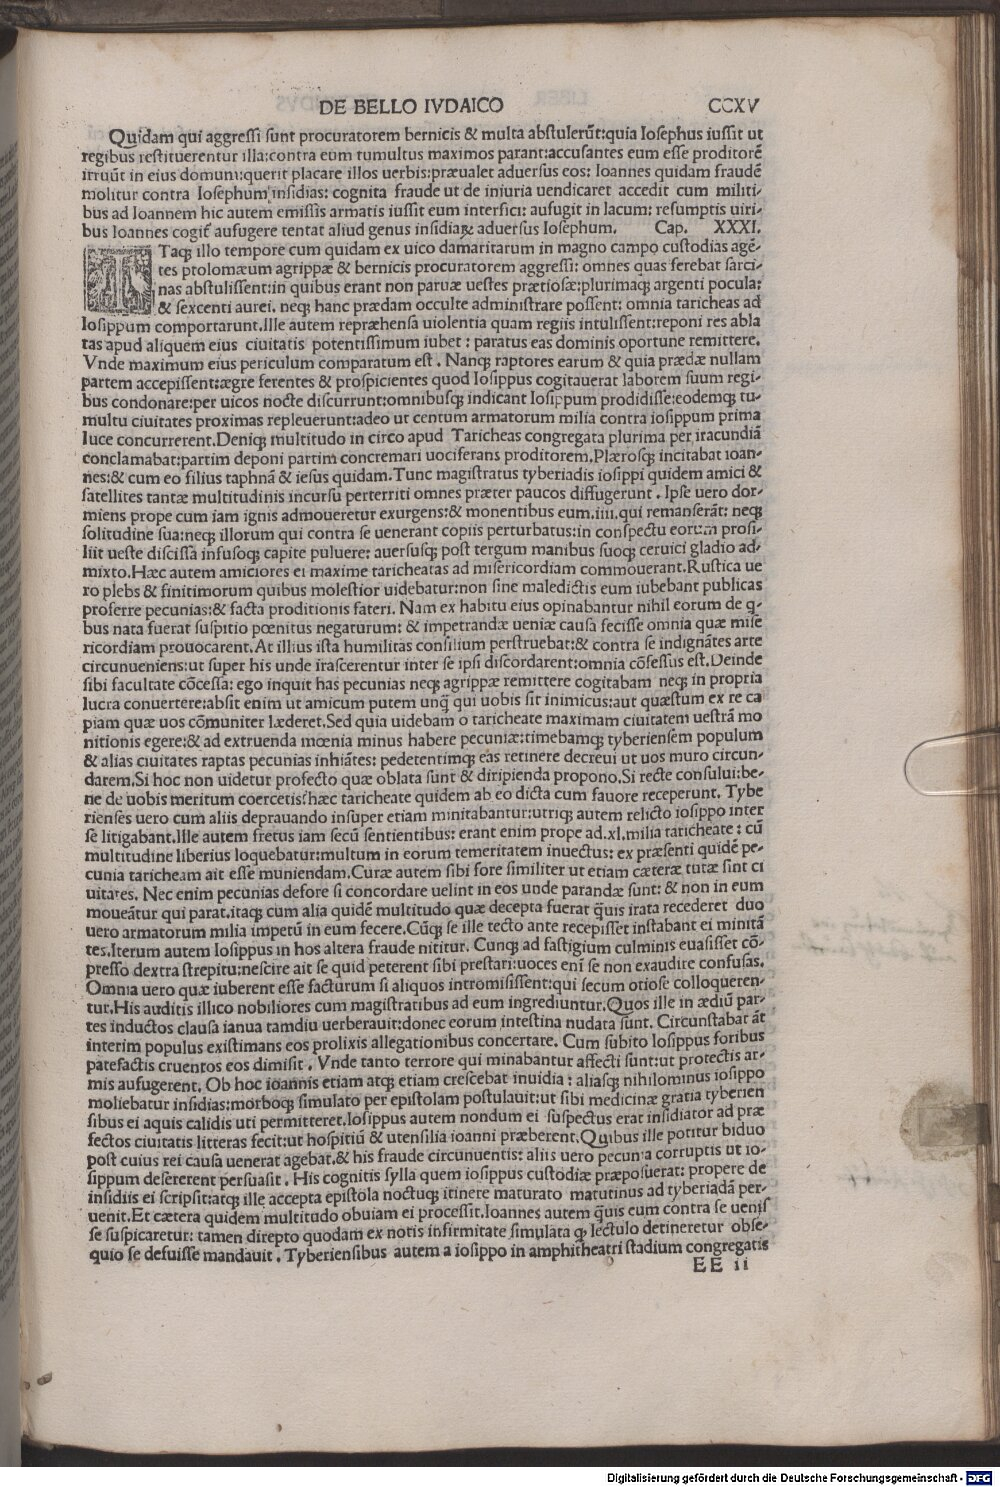 DE BELLO IVDAICO CCXV
Quidam qui aggressi sunt procuratorem bernicis & multa abstulerūt:quia Iosephus iussit ut
regibus restituerentur illa:contra eum tumultus maximos parant:accusantes eum esse proditorē
irruūt in eius domum:querit placare illos uerbis:præualet aduersus eos: Ioannes quidam fraudē
molitur contra Iosephum insidias: cognita fraude ut de iniuria uendicaret accedit cum militi-
bus ad Ioannem hic autem emissis armatis iussit eum interfici: aufugit in lacum: resumptis uiri-
bus Ioannes cogit̃ aufugere tentat aliud genus insidiaꝝ aduersus Iosephum. Cap. XXXI.
ITaqꝫ illo tempore cum quidam ex uico damaritarum in magno campo custodias agē-
tes ptolomæum agrippæ & bernicis procuratorem aggressi: omnes quas ferebat sarci-
nas abstulissent:in quibus erant non paruæ uestes prætiosæ:plurimaqꝫ argenti pocula:
& sexcenti aurei. neqꝫ hanc prædam occulte administrare possent: omnia taricheas ad
Iosippum comportarunt.Ille autem repræhensa uiolentia quam regiis intulissent:reponi res abla
tas apud aliquem eius ciuitatis potentissimum iubet : paratus eas dominis oportune remittere.
Vnde maximum eius periculum comparatum est . Nanqꝫ raptores earum & quia prædæ nullam
partem accepissent:ægre ferentes & prospicientes quod Iosippus cogitauerat laborem suum regi-
bus condonare:per uicos nocte discurrunt:omnibusqꝫ indicant Iosippum prodidisse:eodemqꝫ tu-
multu ciuitates proximas repleuerunt:adeo ut centum armatorum milia contra iosippum prima
luce concurrerent.Deniqꝫ multitudo in circo apud Taricheas congregata plurima per iracundiā
conclamabat:partim deponi partim concremari uociferans proditorem.Plærosqꝫ incitabat ioan-
nes:& cum eo filius taphnā & iesus quidam.Tunc magistratus tyberiadis iosippi quidem amici &
satellites tantæ multitudinis incursu perterriti omnes præter paucos diffugerunt . Ipse uero dor-
miens prope cum iam ignis admoueretur exurgens:& monentibus eum.iiii.qui remanserāt: neqꝫ
solitudine sua:neqꝫ illorum qui contra se uenerant copiis perturbatus:in conspectu eorum prosi-
liit ueste discissa infusoqꝫ capite puluere: auersusqꝫ post tergum manibus suoqꝫ ceruici gladio ad-
mixto.Hæc autem amiciores ei maxime taricheatas ad misericordiam commouerant.Rustica ue
ro plebs & finitimorum quibus molestior uidebatur:non sine maledictis eum iubebant publicas
proferre pecunias:& facta proditionis fateri. Nam ex habitu eius opinabantur nihil eorum de q-
bus nata fuerat suspitio pœnitus negaturum: & impetrandæ ueniæ causa fecisse omnia quæ mise
ricordiam prouocarent.At illius ista humilitas consilium perstruebat:& contra se indignātes arte
circunueniens:ut super his unde irascerentur inter se ipsi discordarent:omnia cōfessus est.Deinde
sibi facultate cōcessa: ego inquit has pecunias neqꝫ agrippæ remittere cogitabam neqꝫ in propria
lucra conuertere:absit enim ut amicum putem unq̄ qui uobis sit inimicus:aut quæstum ex re ca
piam quæ uos cōmuniter læderet.Sed quia uidebam o taricheate maximam ciuitatem uestrā mo
nitionis egere:& ad extruenda mœnia minus habere pecuniæ:timebamqꝫ tyberiensem populum
& alias ciuitates raptas pecunias inhiātes: pedetentimqꝫ eas retinere decreui ut uos muro circun-
darem.Si hoc non uidetur profecto quæ oblata sunt & diripienda propono.Si recte consului:be-
ne de uobis meritum coercetis?hæc taricheate quidem ab eo dicta cum fauore receperunt. Tybe
rienses uero cum aliis deprauando insuper etiam minitabantur:utriqꝫ autem relicto iosippo inter
se litigabant.Ille autem fretus iam secū sentientibus: erant enim prope ad.xl.milia taricheate : cū
multitudine liberius loquebatur:multum in eorum temeritatem inuectus: ex præsenti quidē pe-
cunia taricheam ait esse muniendam.Curæ autem sibi fore similiter ut etiam cæteræ tutæ sint ci
uitates. Nec enim pecunias defore si concordare uelint in eos unde parandæ sunt: & non in eum
moueātur qui parat.itaqꝫ cum alia quidē multitudo quæ decepta fuerat q̄uis irata recederet duo
uero armatorum milia impetū in eum fecere.Cūqꝫ se ille tecto ante recepisset instabant ei minitā
tes.Iterum autem Iosippus in hos altera fraude nititur. Cunqꝫ ad fastigium culminis euasisset cō-
presso dextra strepitu:nescire ait se quid peterent sibi prestari:uoces enī se non exaudire confusas.
Omnia uero quæ iuberent esse facturum si aliquos intromisissent:qui secum otiose colloqueren-
tur.His auditis illico nobiliores cum magistratibus ad eum ingrediuntur.Quos ille in ædiū par-
tes inductos clausa ianua tamdiu uerberauit:donec eorum intestina nudata sunt. Circunstabat āt
interim populus existimans eos prolixis allegationibus concertare. Cum subito Iosippus foribus
patefactis cruentos eos dimisit . Vnde tanto terrore qui minabantur affecti sunt:ut protectis ar-
mis aufugerent. Ob hoc ioannis etiam atqꝫ etiam crescebat inuidia : aliasqꝫ nihilominus iosippo
moliebatur insidias:morboqꝫ simulato per epistolam postulauit:ut sibi medicinæ gratia tyberien
sibus ei aquis calidis uti permitteret.Iosippus autem nondum ei suspectus erat insidiator ad præ
fectos ciuitatis litteras fecit:ut hospitiū & utensilia ioanni præberent.Quibus ille potitur biduo
post cuius rei causa uenerat agebat.& his fraude circunuentis: aliis uero pecunia corruptis ut io-
sippum desererent persuasit . His cognitis sylla quem iosippus custodiæ præposuerat: propere de
insidiis ei scripsit:atqꝫ ille accepta epistola noctuqꝫ itinere maturato matutinus ad tyberiadā per-
uenit.Et cætera quidem multitudo obuiam ei processit.Ioannes autem q̄uis eum contra se uenis
se suspicaretur: tamen direpto quodam ex notis infirmitate simulata qꝫ lectulo detineretur obse-
quio se defuisse mandauit . Tyberiensibus autem a iosippo in amphitheatri stadium congregatis
EE ii
Digitalisierung gefördert durch die Deutsche Forschungsgemeinschaft - DFG